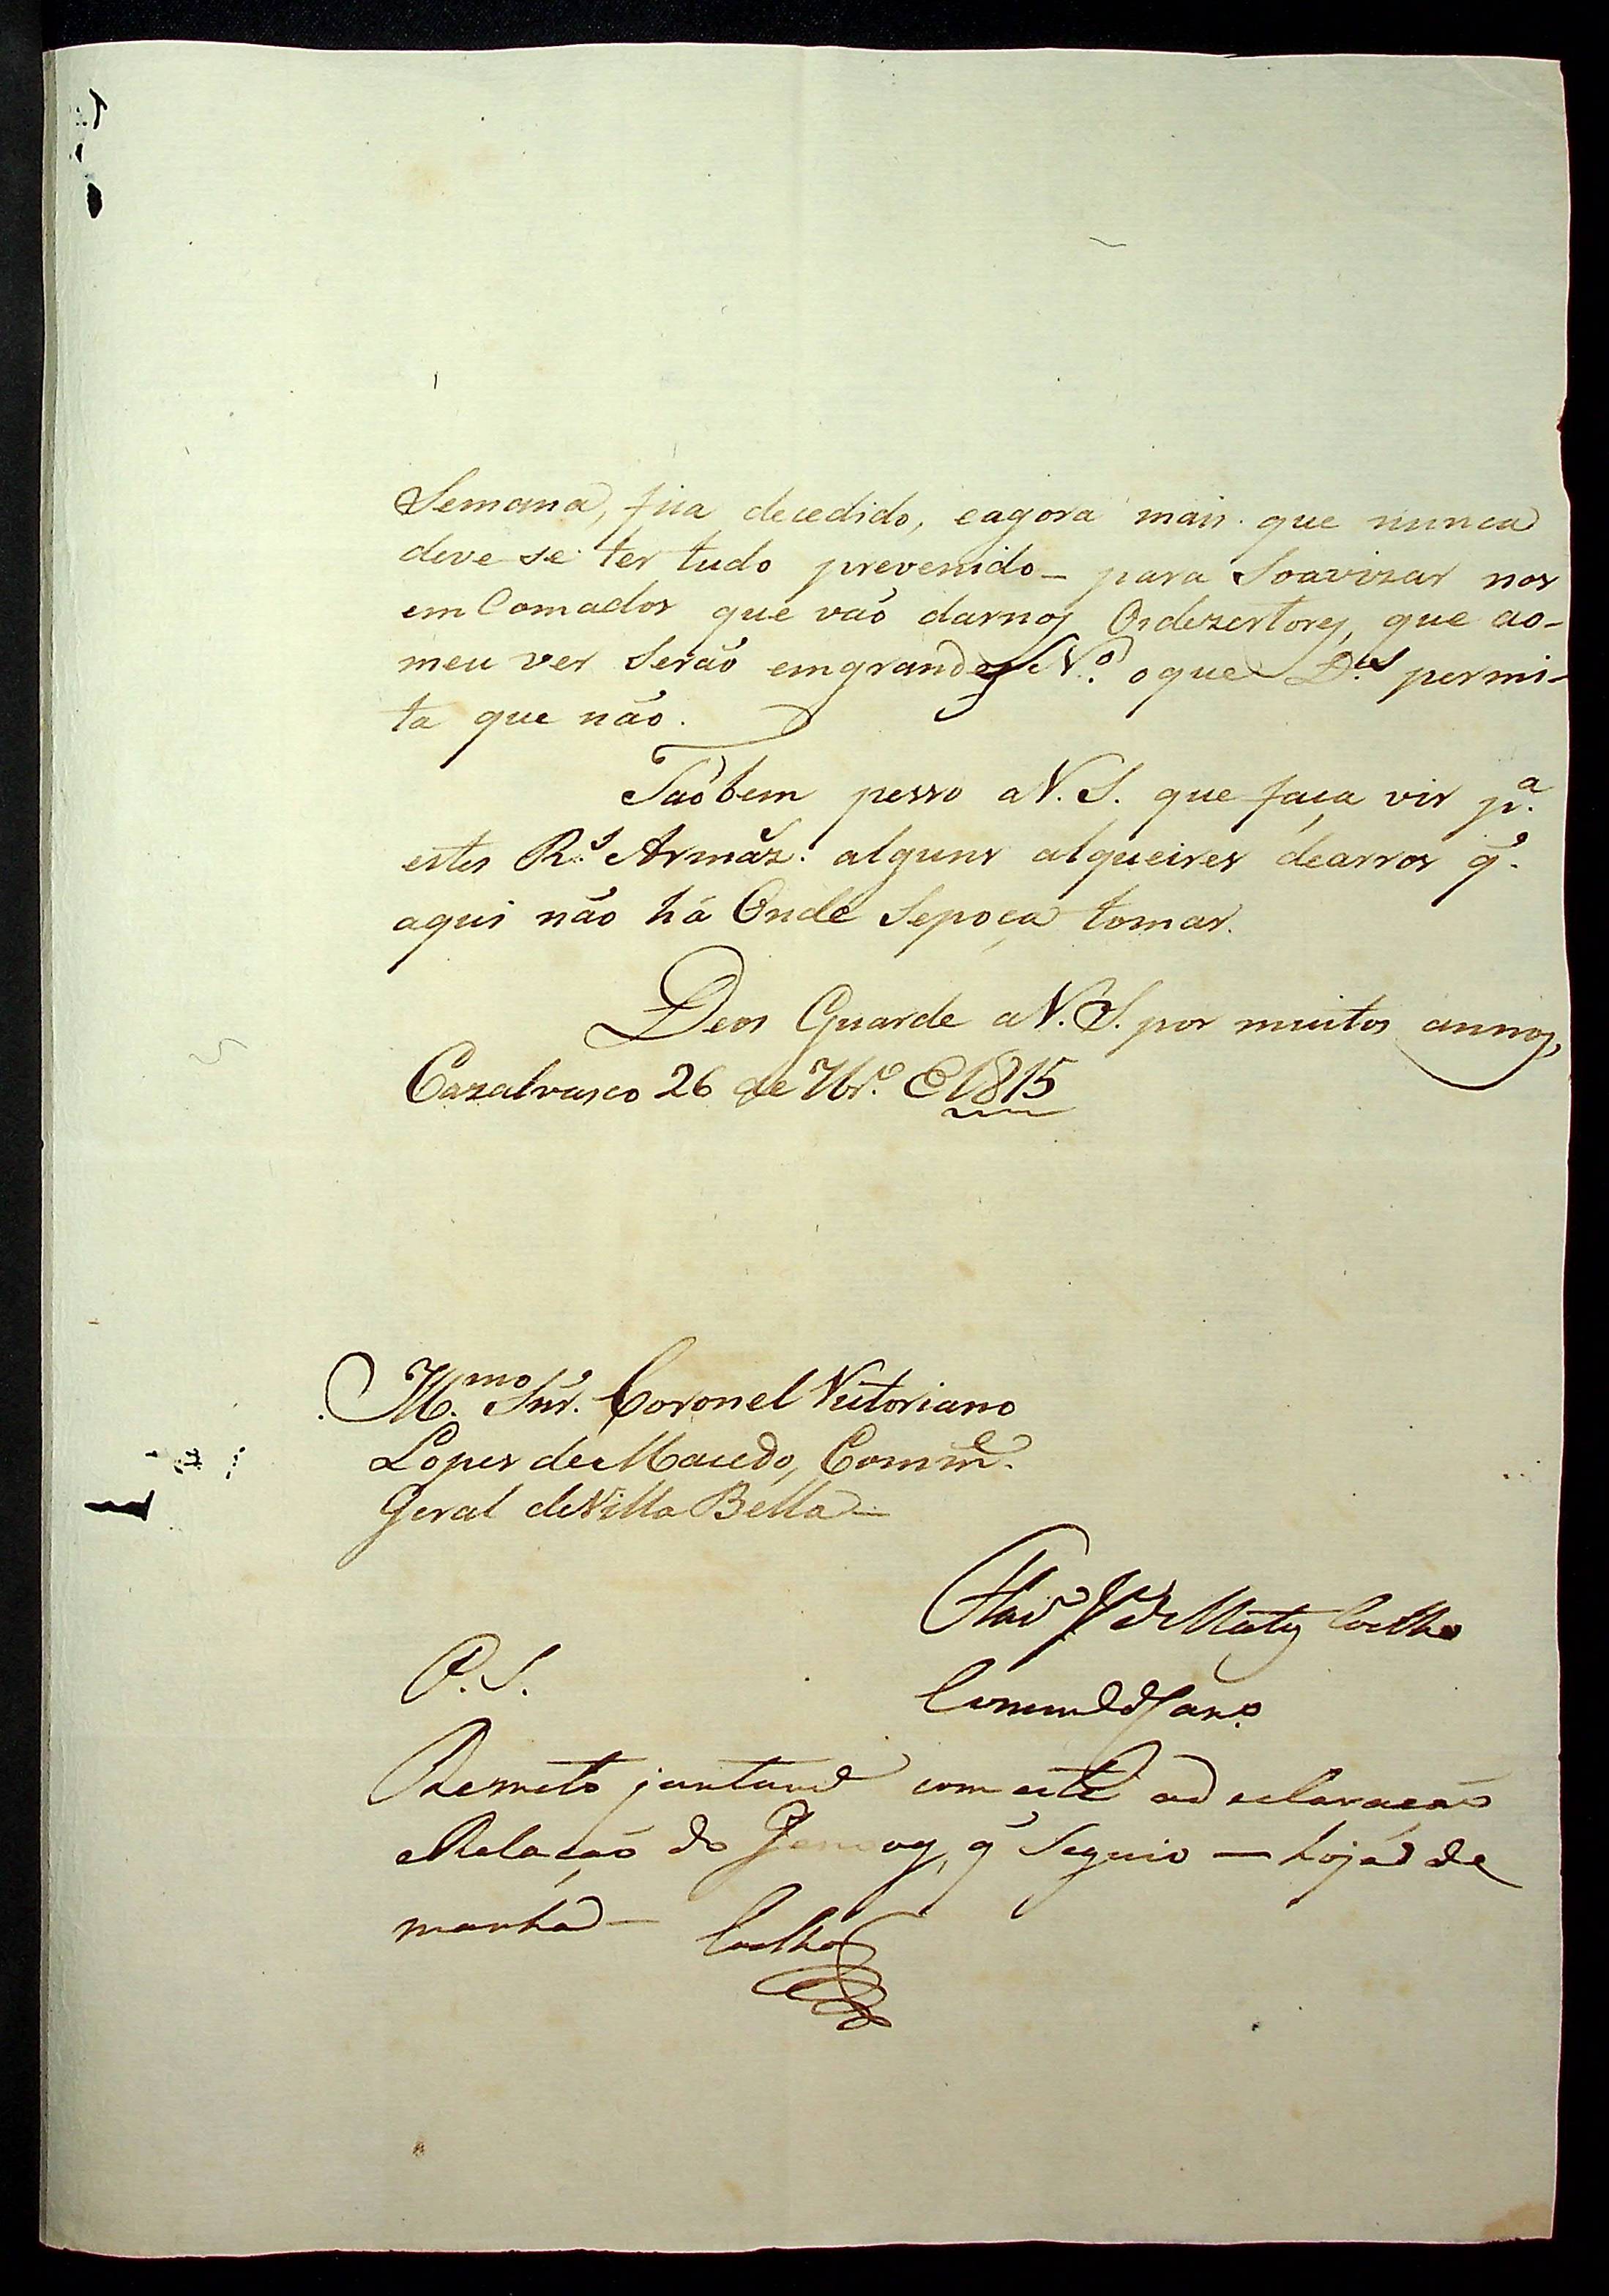 Semana, fica decedido, eagora mais que nunca
deve se ter tudo prevenido_ para Soavizar nos
em Comados que vaõ darnos Ordezertores, que ao-
meu ver Seraõ emgrandes N.º oque D.s permi-
ta que naõ.
Taõbem pesso aV. S. que faça vir p.ª
estes R.s Armãz. alguns alqueires dearros q̃.
aqui naõ há Onde Sepoça tomar.
Deos Guarde aV. S. por muitos annos,
Cazalvasco 26 de 1815
Ill.mo Snr. Coronel Victoriano
Lopes de Macedo, Comm.e
Geral deVilla Bella
Coelho
P. S.
Remeto com este adeclaraçaõ
eRelaçaõ do q̃ Seguio — hoje de
manhã —
Coelho